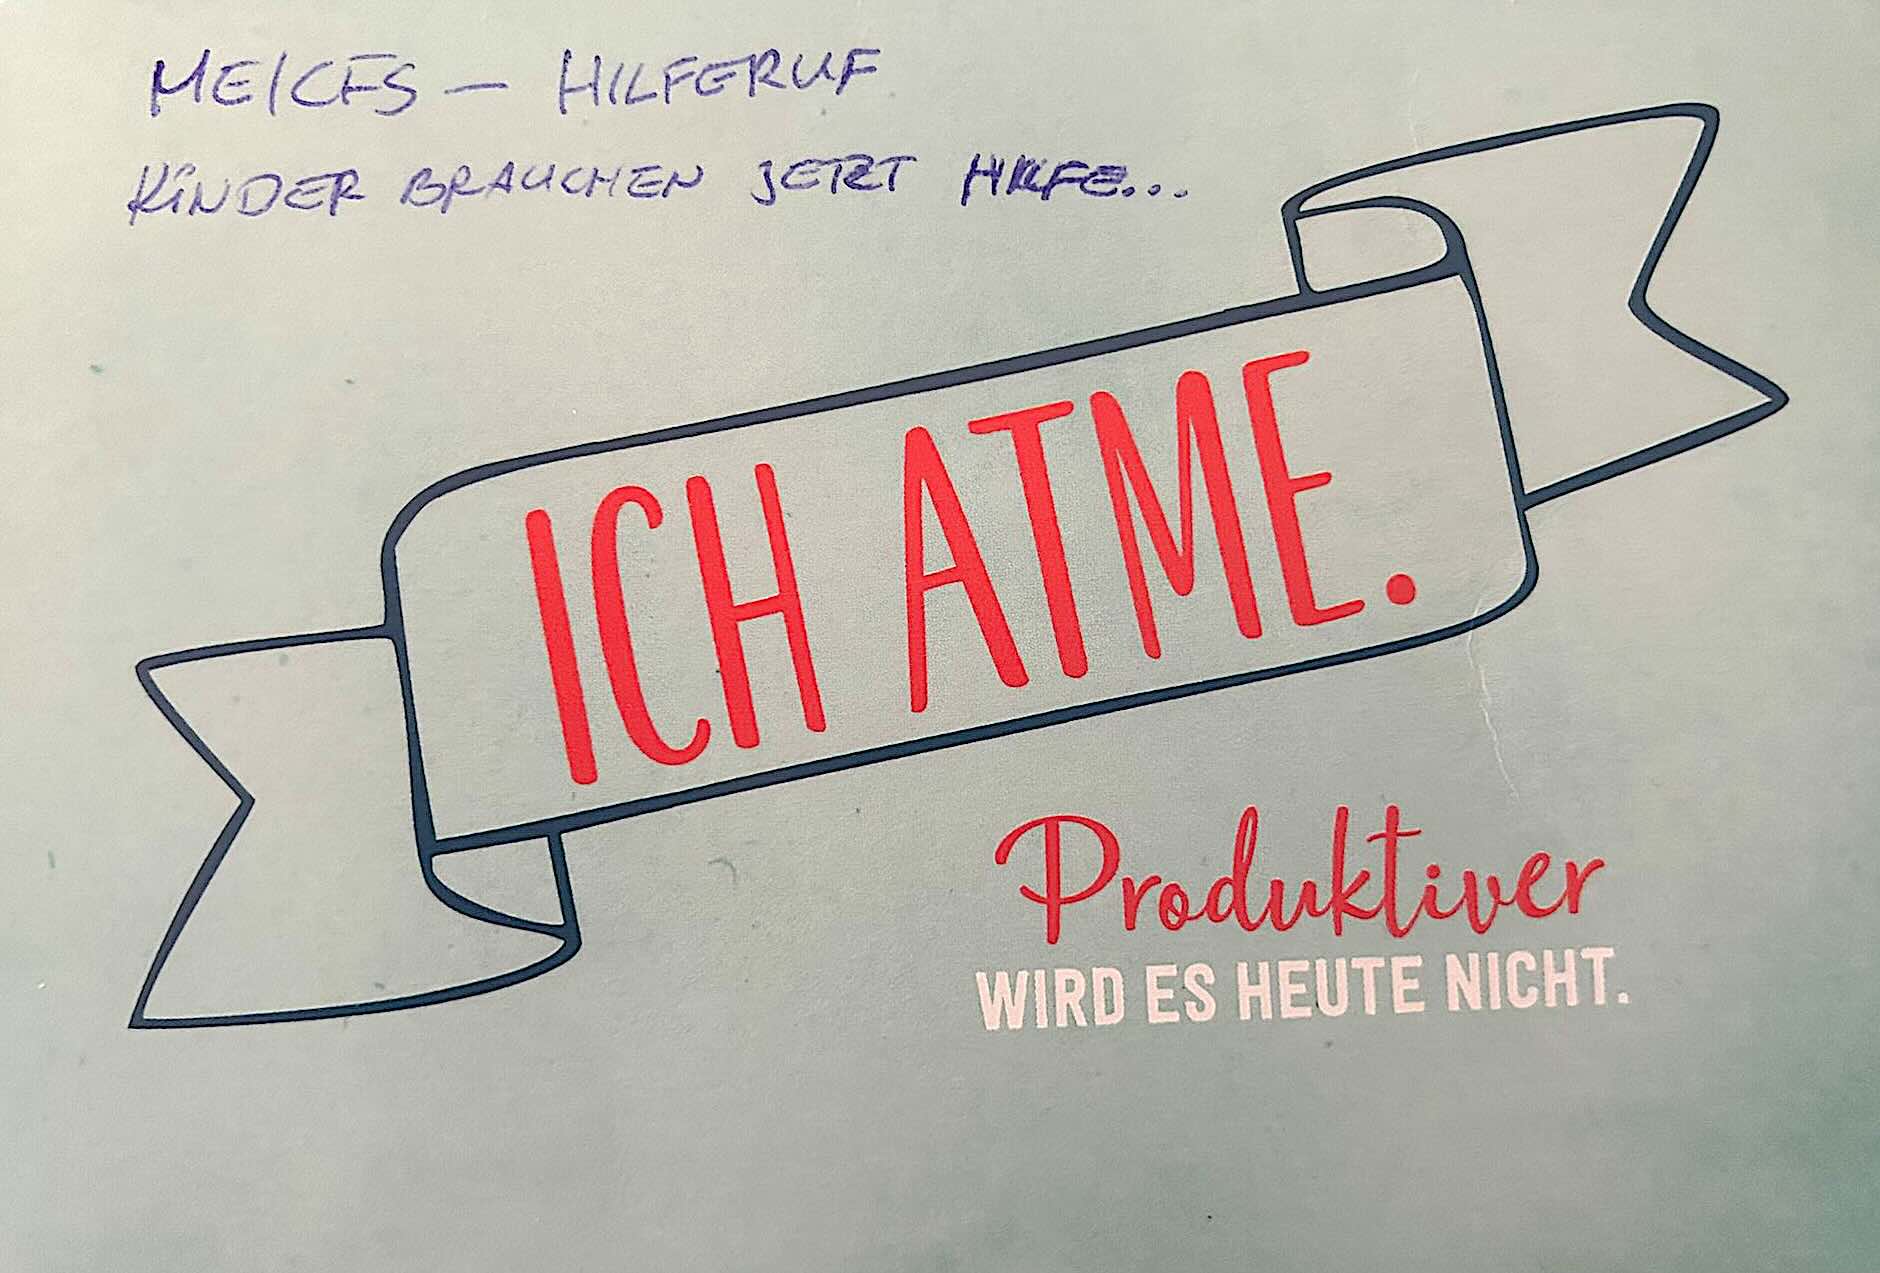 ME/CFS – HILFERUF
KINDER BRAUCHEN JETZT HILFE...
ICH ATME.
Produktiver
WIRD ES HEUTE NICHT.